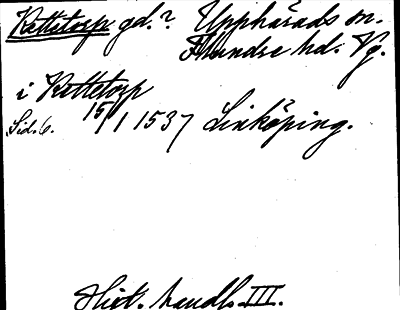 Rettetorp gd.? Upphärads sn.
Flundre hd. Vg.
i Rettetorp
Sid. 6. 15/1 1537 Linköping.
Hist. handl. III.